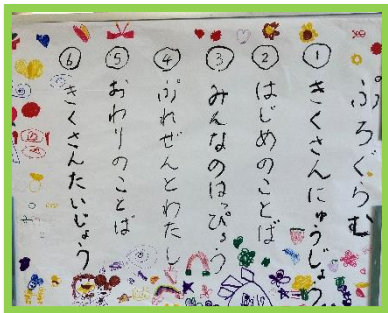 ぷろぐらむ
① きくさんにゅうじょう
② はじめのことば
③ みんなのはっぴょう
④ ぷれぜんとわたし
⑤ おわりのことば
⑥ きくさんたいじょう